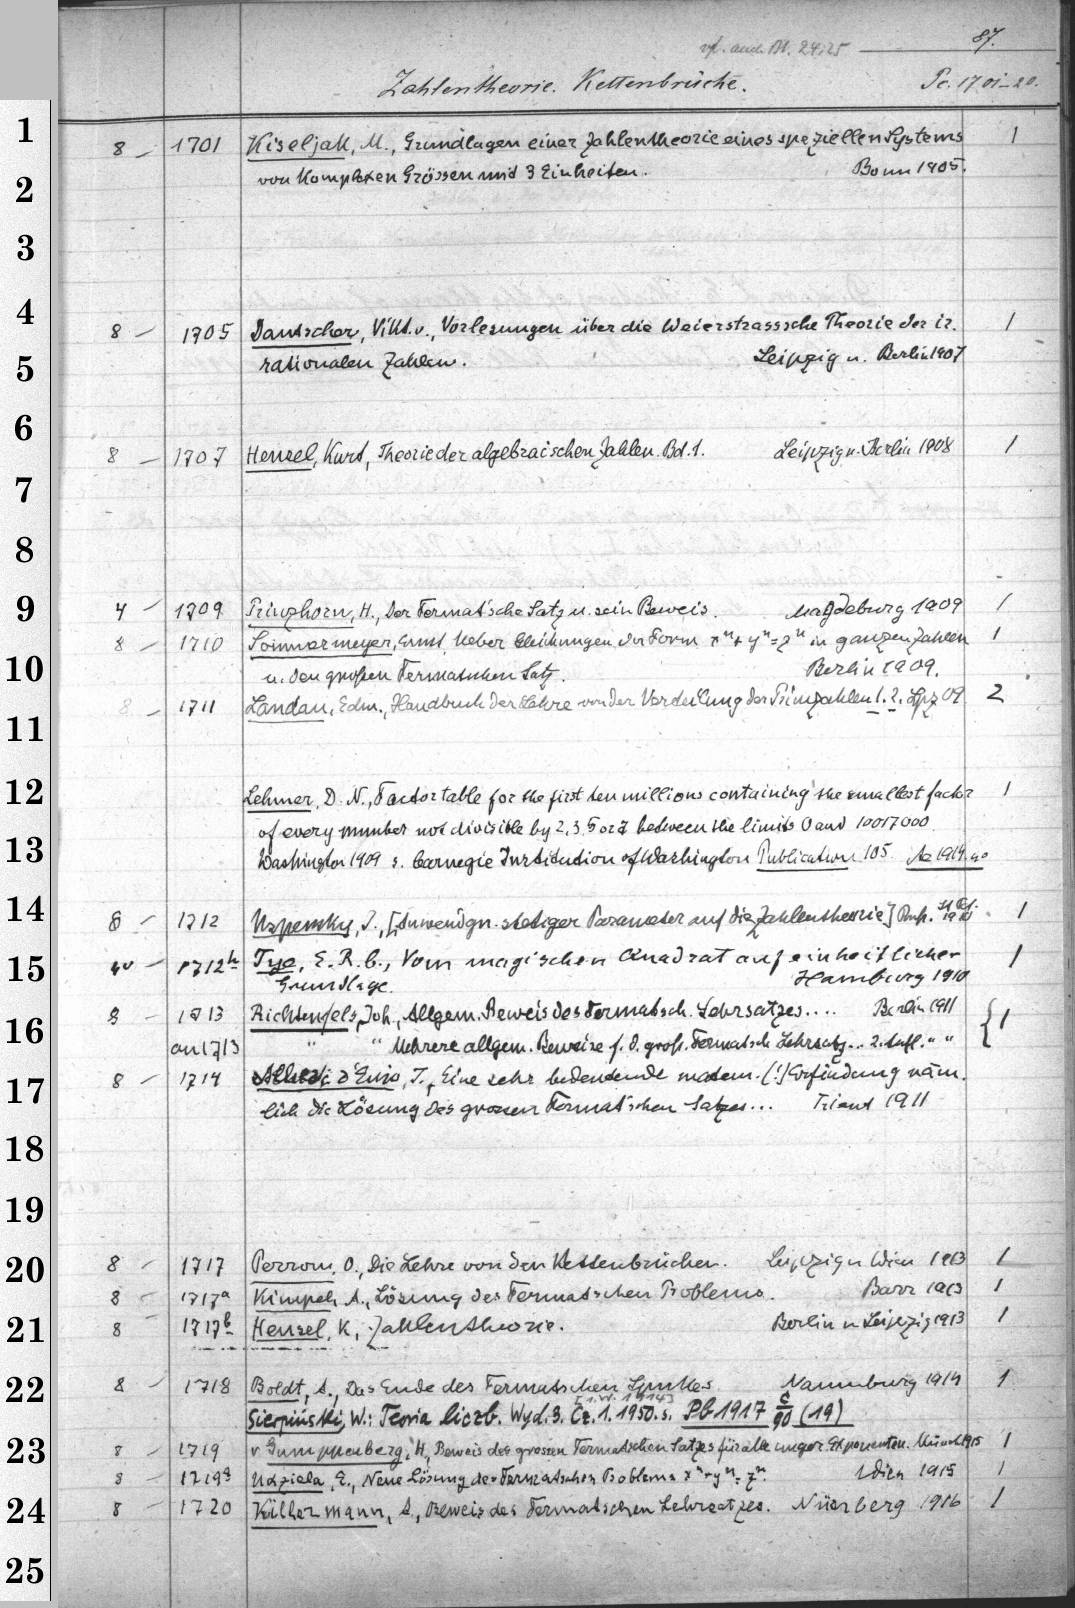 87.
vgl. auch Bl. 24. 25
Zahlentheorie. Kettenbrüche. Pc. 1701-20.
1
8 - 1701 Kiseljak, M., Grundlagen einer Zahlentheorie eines speziellen Systems 1
2
von komplexen Grössen mit 3 Einheiten. Bonn 1905.
3
4
8 - 1705 Dantscher, Vikt. v., Vorlesungen über die Weierstrasssche Theorie der ir- 1
5
rationalen Zahlen. Leipzig u. Berlin 1907
6
8 - 1707 Hensel, Kurt, Theorie der algebraischen Zahlen. Bd. 1. Leipzig u. Berlin 1908 1
7
8
9
4 - 1709 Prinzhorn, H., Der Fermat'sche Satz u. sein Beweis. Magdeburg 1909 1
8 - 1710 Sommermeyer, Ernst, Ueber Gleichungen der Form xⁿ + yⁿ = zⁿ in ganzen Zahlen 1
10
u. den großen Fermatschen Satz. Berlin 1909.
8 - 1711 Landau, Edm., Handbuch der Lehre von der Verteilung der Primzahlen 1. 2. Lpz 09 2
11
12
Lehmer, D. N., Factor table for the first ten millions containing the smallest factor 1
of every number not divisible by 2, 3, 5 or 7 between the limits 0 and 10017000
13
Washington 1909 s. Carnegie Institution of Washington Publication 105
14
8 - 1712 Uspensky, J., [Anwendgn. stetiger Parameter auf die Zahlentheorie] 1910 1
15
4° - 1712h Tye, E. R. G., Vom magischen Quadrat auf einheitlicher 1
Grundlage. Hamburg 1910
16
8 - 1713 Richtenfels, Joh., Allgem. Beweis des Fermatsch. Lehrsatzes.... Berlin 1911 { 1
an 1713 " " Mehrere allgem. Beweise f. d. groß. Fermatsch Lehrsatz... 2. Aufl. " "
17
8 - 1714 d'Enio, T., Eine sehr bedeutende matem. (!) Erfindung näm-
lich die Lösung des grossen Fermat'schen Satzes... Trient 1911
18
19
20
8 - 1717 Perron, O., Die Lehre von den Kettenbrüchen. Leipzig u Wien 1913 1
8 - 1717a Kimpel, A., Lösung des Fermatschen Problems. Barr 1913 1
21
8 1717b Hensel, K., Zahlentheorie. Berlin u Leipzig 1913 1
22
8 - 1718 Boldt, A., Das Ende des Fermatschen Spukes Naumburg 1914 1
[1. W. 1914]
Sierpiński, W.: Teoria liczb. Wyd. 3. Cz. 1. 1950. s. Pb 1917 c/90 (19)
23
8 - 1719 v Gumppenberg, H., Beweis des grossen Fermatschen Satzes für alle unger. Exponenten. Münch 1915 1
8 - 1719a Udziela, E., Neue Lösung des Fermatschen Problems xⁿ + yⁿ = zⁿ. Wien 1915 1
24
8 1720 Killermann, A., Beweis des Fermatschen Lehrsatzes. Nürnberg 1916 1
25